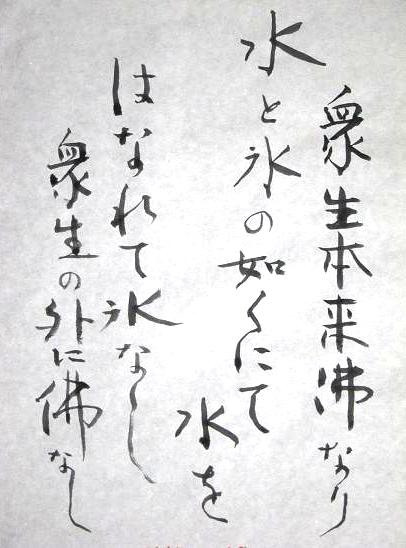 衆生本来佛なり
水と氷の如くにて
水を
はなれて氷なし
衆生の外に佛なし